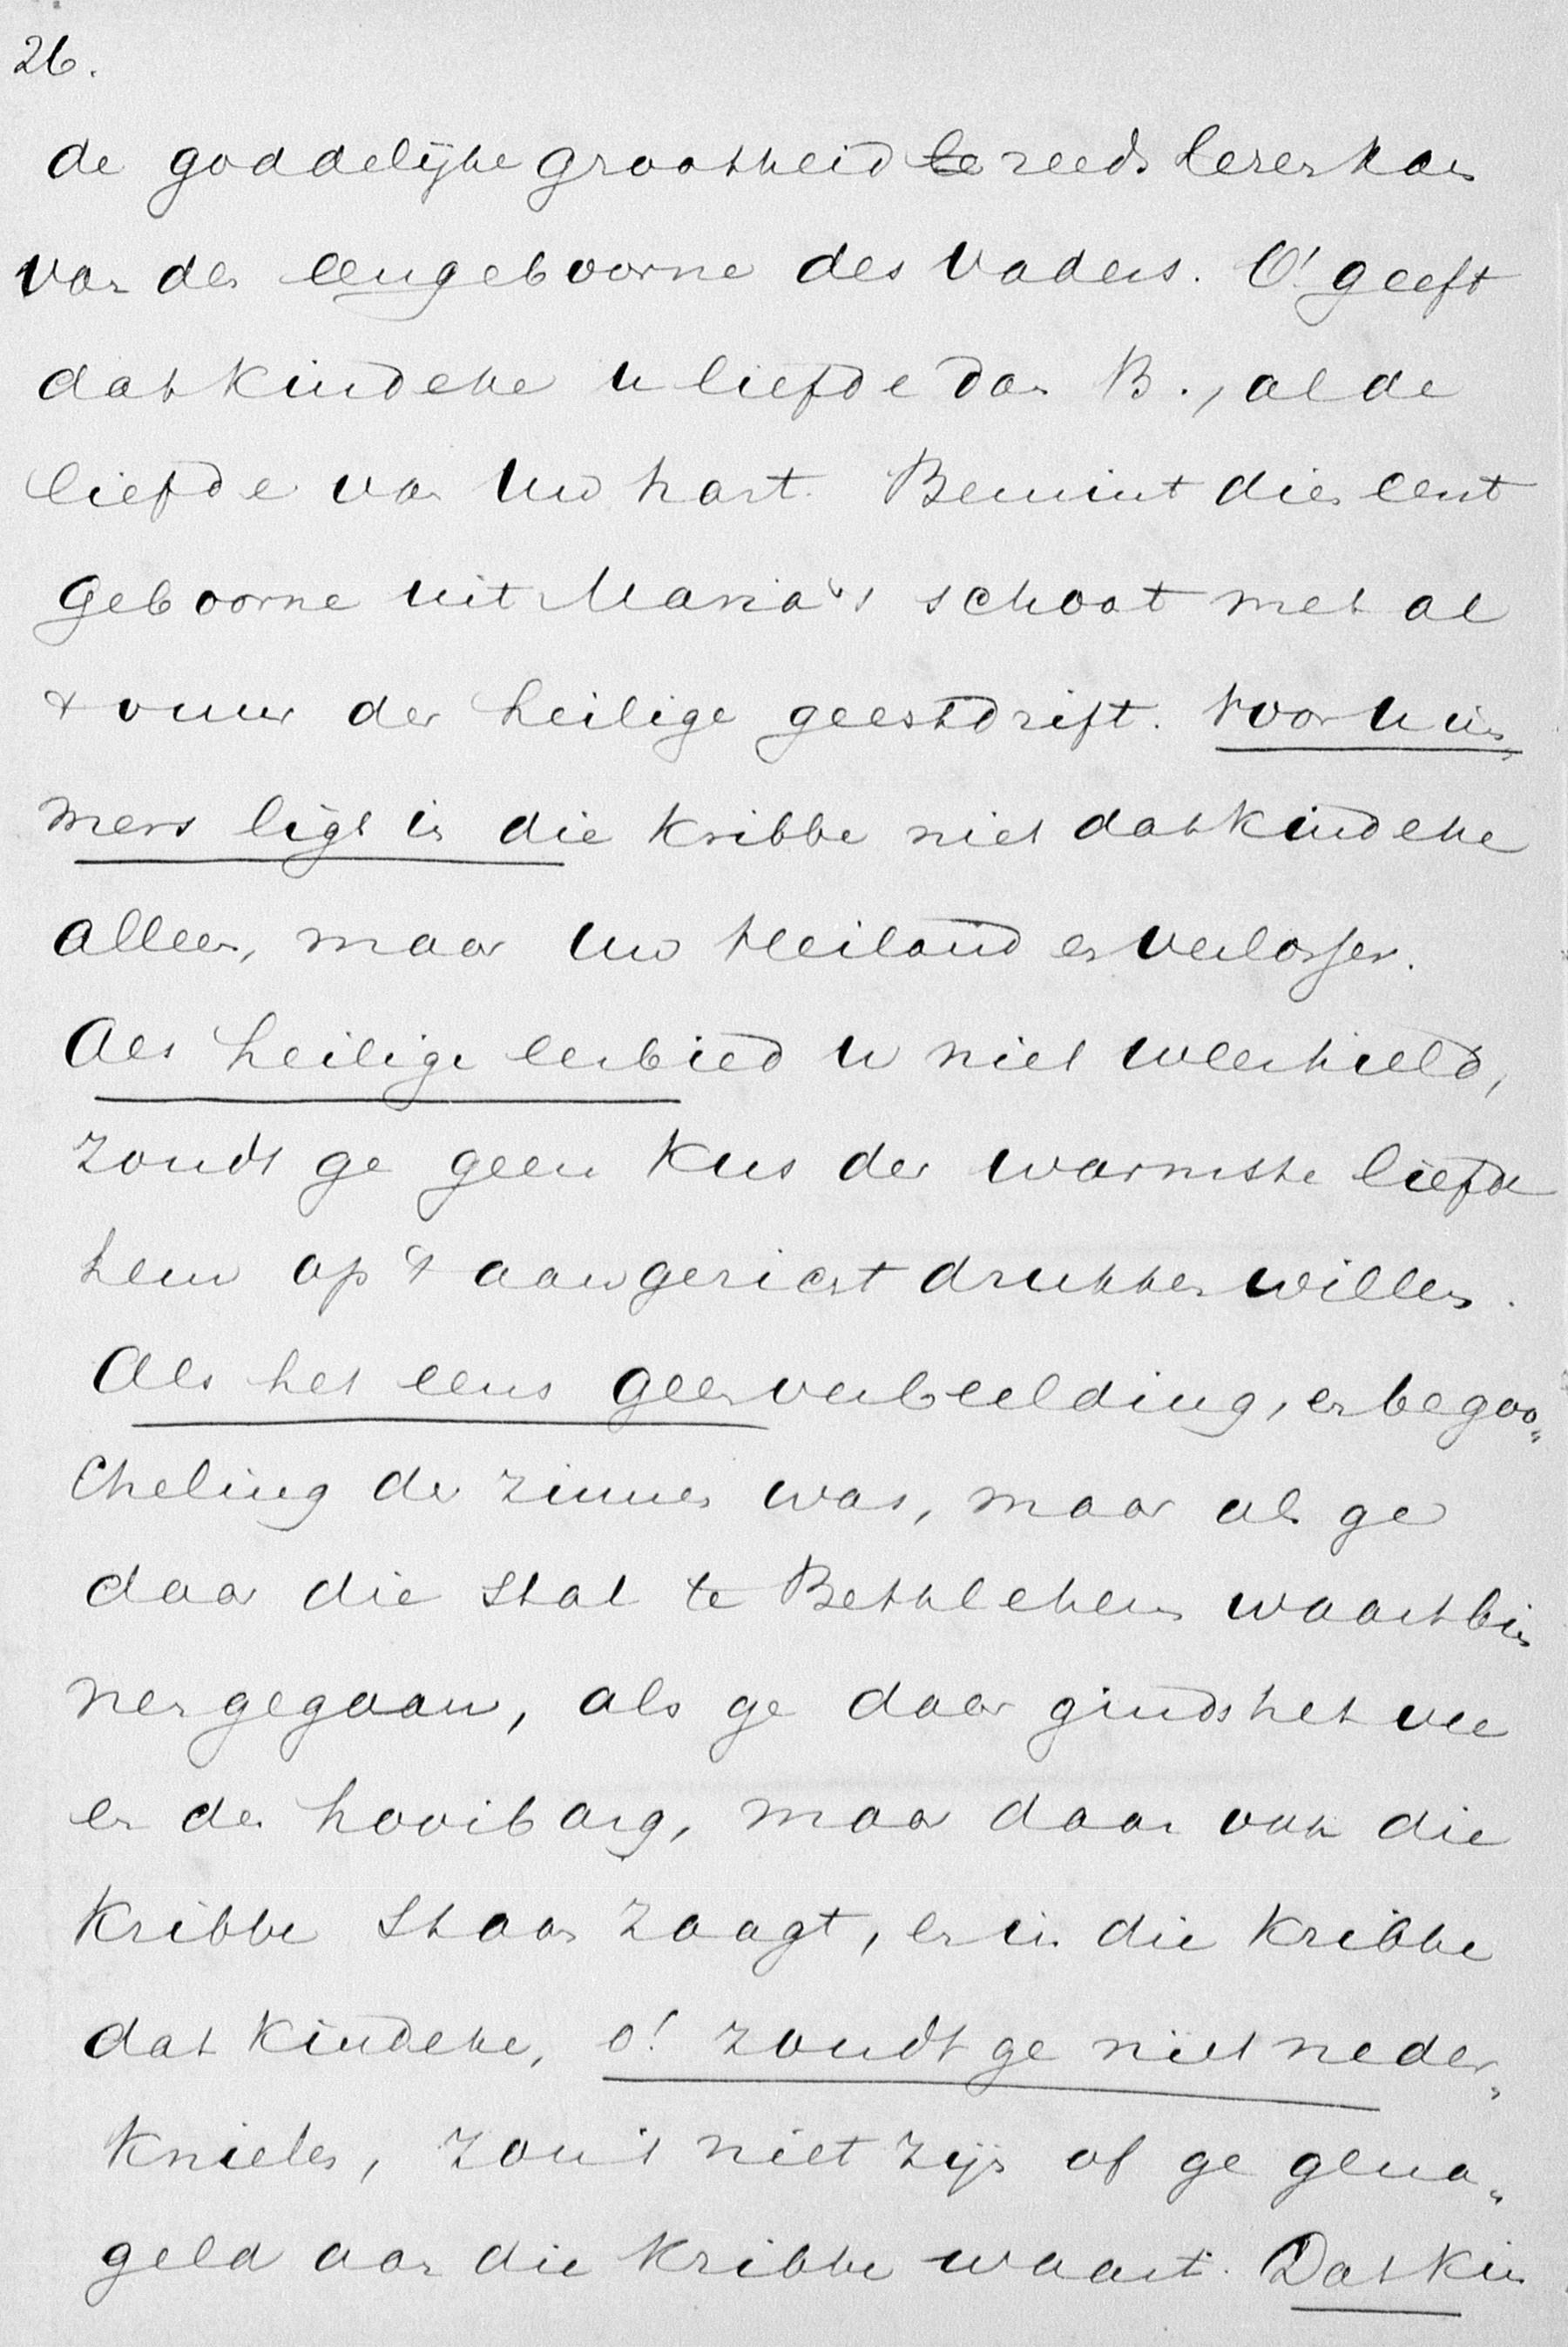 26.
de goddelijke grootheid be reeds lezen kan
van den eengeboorne des Vaders. O! geeft
dat kindeke u liefde dan B., al de
liefde van Uw hart. Bemint dien eerst
geboorne uit Maria's schoot met al
't vuur der heilige geestdrift. Voor U im„
mers ligt in die kribbe niet dat kindeke
alleen, maar Uw Heiland en Verlosser.
Als heilige eerbied U niet weerhield,
zoudt ge geen kus der warmste liefde
hem op 't aangezicht drukken willen.
Als het eens geen verbeelding, en begoo„
cheling der zinnen was, maar als ge
daar die stal te Bethlehem waart bin
nengegaan, als ge daar ginds het vee
en den hooiberg, maar daar ook die
kribbe staan zaagt, en in die kribbe
dat kindeke, o! zoudt ge niet neder„
knielen, zou 't niet zijn of ge gena„
geld aan die kribbe waart. Dat kin